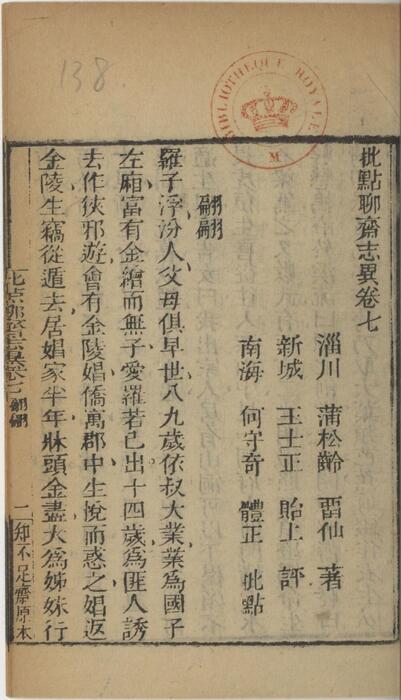 138
BIBLIOTHEQUE ROYALE
M
批點聊齋志異卷七
淄川 蒲松齡 畱仙 著
新城 王士正 貽上 評
南海 何守奇 體正 批點
翩翩
羅子浮汾人父母俱早世八九歲依叔大業業為國子
左廂富有金繒而無子愛羅若己出十四歲為匪人誘
去作狹邪遊會有金陵娼僑寓郡中生悅而惑之娼返
金陵生竊從遁去居娼家半年牀頭金盡大為姊妹行
翩翩
知不足齋原本